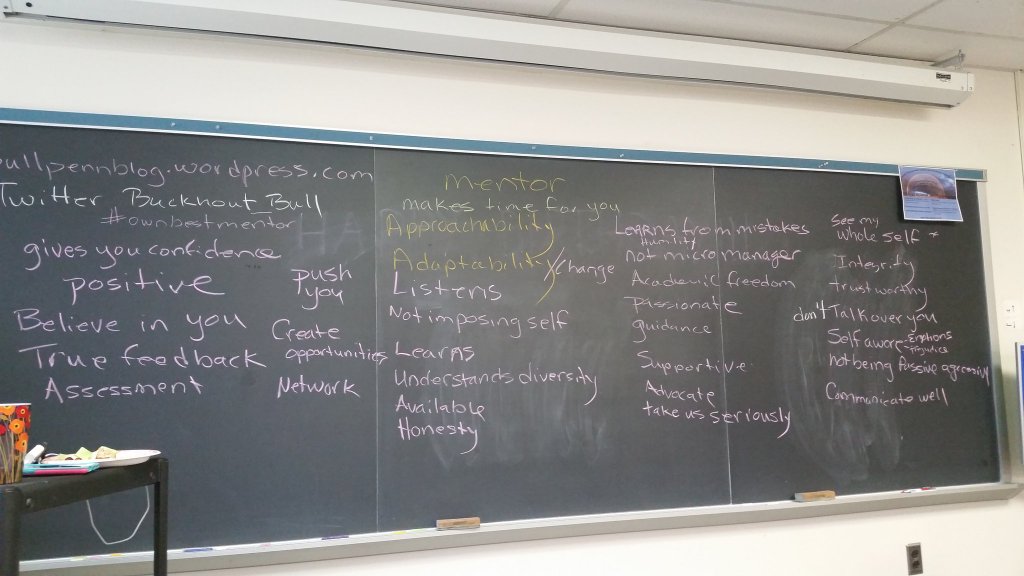 ullpennblog.wordpress.com
Twitter Bucknout_Bull
#ownbestmentor
gives you confidence
positive
Believe in you
True feedback
Assessment
push
you
Create
opportunities
Network
mentor
makes time for you
Approachability
Adaptability
change
Listens
Not imposing self
Learns
Understands diversity
Available
Honesty
Learns from mistakes
Humility
not micro manager
Academic freedom
passionate
guidance
Supportive
Advocate
take us seriously
See my
whole self *
Integrity
trustworthy
don't Talk over you
Self aware - Emotions
not being passive aggressive
Communicate well